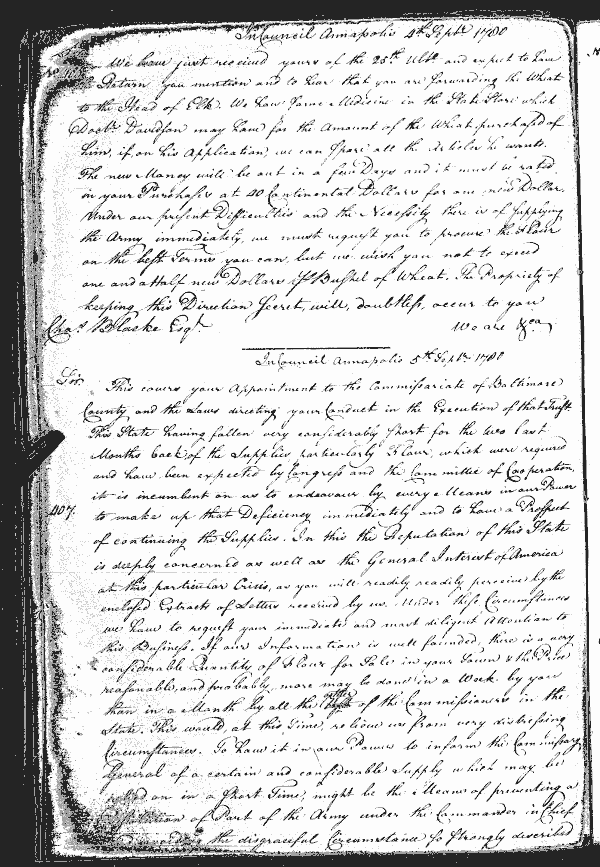 In Council Annapolis 4th Septr 1780
We have just received yours of the 25th Ulto and expect to have
the Return you mention and to hear that you are forwarding the Wheat
to the Head of Elk. We have some Medicine in the State Store which
Doctr Davidson may have for the Amount of the Wheat purchased of
him, if on his Application, we can spare all the Articles he wants.
The new Money will be out in a few Days and it must be rated
in your Purchases at 40 Continental Dollars for one new Dollar.
Under our present Difficulties and the Necessity there is of supplying
the Army immediately, we must request you to procure the Flour
on the best Terms you can, but we wish you not to exceed
one and a Half new Dollars pr Bushel of Wheat. The Propriety of
keeping this Direction secret, will, doubtless, occur to you
Chas Blake Esqr. We are &ca
In Council Annapolis 5th Septr 1780
Sir.
This covers your Appointment to the Commissariate of Baltimore
County and the Laws directing your Conduct in the Execution of that Trust
This State having fallen very considerably short for the two last
Months back of the Supplies particularly Flour, which were required
and have been expected by Congress and the Committee of Cooperation,
it is incumbent on us to endeavour by every Means in our Power
407.
to make up that Deficiency immediately and to have a Prospect
of continuing the Supplies. In this the Reputation of this State
is deeply concerned as well as the General Interest of America
at this particular Crisis, as you will readily readily perceive by the
enclosed Extracts of Letters received by us. Under these Circumstances
we have to request your immediate and most diligent Attention to
this Business. If our Information is well founded, there is a very
considerable Quantity of Flour for Sale in your Town & the Price
reasonable, and probably, more may be done in a Week by you
than in a Month by all the of the Commissioners in the
State. This would, at this Time, relieve us from very distressing
Circumstances. To have it in our Power to inform the Commissary
General of a certain and considerable Supply which may be
on in a short Time, might be the Means of preventing a
of Part of the Army under the Commander in Chief
the disgraceful Circumstance so strongly described